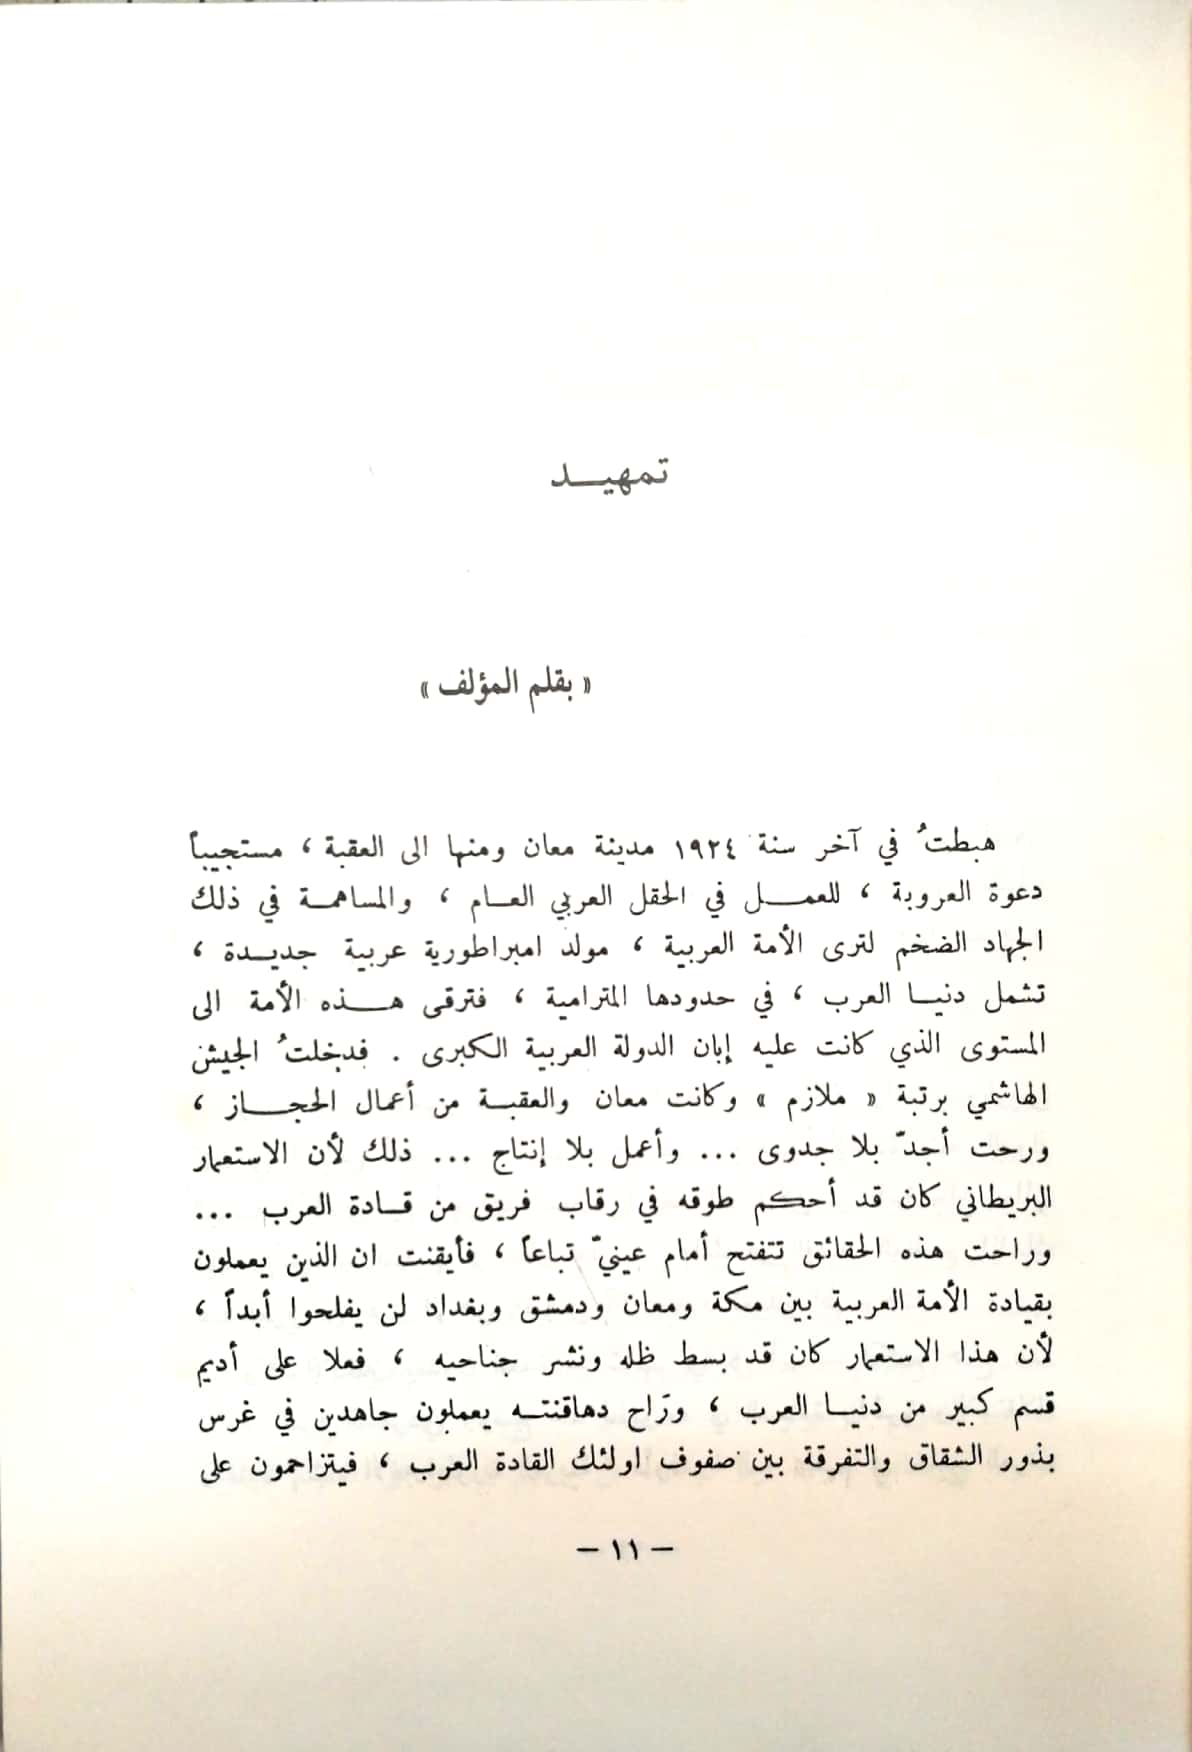 تمهيد
« بقلم المؤلف »
هبطتُ في آخر سنة ١٩٢٤ مدينة معان ومنها الى العقبة ، مستجيباً
دعوة العروبة ، للعمل في الحقل العربي العام ، والمساهمة في ذلك
الجهاد الضخم لترى الأمة العربية ، مولد امبراطورية عربية جديدة ،
تشمل دنيا العرب ، في حدودها المترامية ، فترقى هذه الأمة الى
المستوى الذي كانت عليه إبان الدولة العربية الكبرى . فدخلتُ الجيش
الهاشمي برتبة « ملازم » وكانت معان والعقبة من أعمال الحجاز ،
ورحت أجدّ بلا جدوى ... وأعمل بلا إنتاج ... ذلك لأن الاستعمار
البريطاني كان قد أحكم طوقه في رقاب فريق من قادة العرب ...
وراحت هذه الحقائق تتفتح أمام عينيّ تباعاً ، فأيقنت ان الذين يعملون
بقيادة الأمة العربية بين مكة ومعان ودمشق وبغداد لن يفلحوا أبداً ،
لأن هذا الاستعمار كان قد بسط ظله ونشر جناحيه ، فعلا على أديم
قسم كبير من دنيا العرب ، ورَاح دهاقنته يعملون جاهدين في غرس
بذور الشقاق والتفرقة بين صفوف اولئك القادة العرب ، فيتزاحمون على
— ١١ —